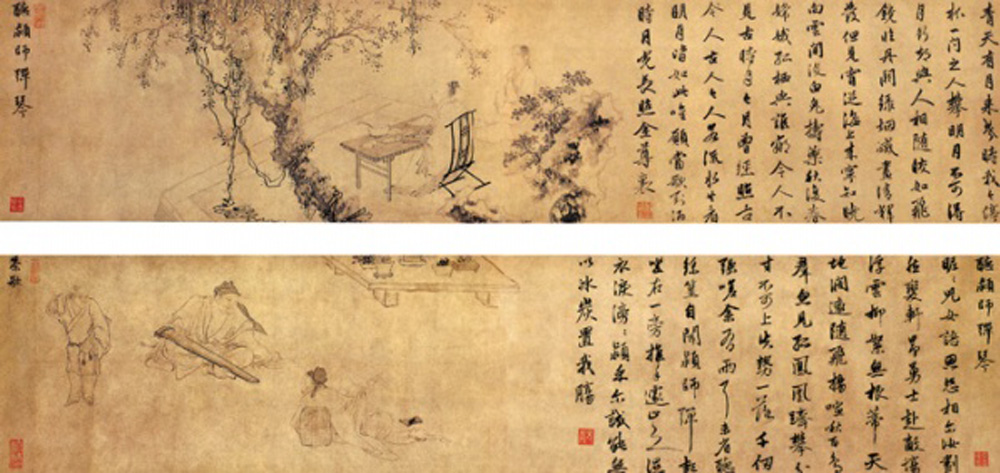 青天有月來幾時我今停
杯一問之人攀明月不可得
月行却與人相隨皎如飛
鏡臨丹闕綠烟滅盡清輝
發但見宵從海上來寧知曉
向雲間沒白兔擣藥秋復春
嫦娥孤栖與誰鄰今人不
見古時月今月曾經照古
人古人今人若流水共看
明月皆如此唯願當歌對酒
時月光長照金尊裏
聽穎師彈琴
聽穎師彈琴
昵昵兒女語恩怨相爾汝劃
然變軒昂勇士赴敵場
浮雲柳絮無根蒂天
地闊遠隨飛揚喧啾百鳥
羣忽見孤鳳凰躋攀分
寸不可上失勢一落千仞
強嗟余有兩耳未省聽
絲篁自聞穎師彈起
坐在一旁推手遽止之濕
衣淚滂滂穎乎爾誠能無
以冰炭置我腸
茶歌